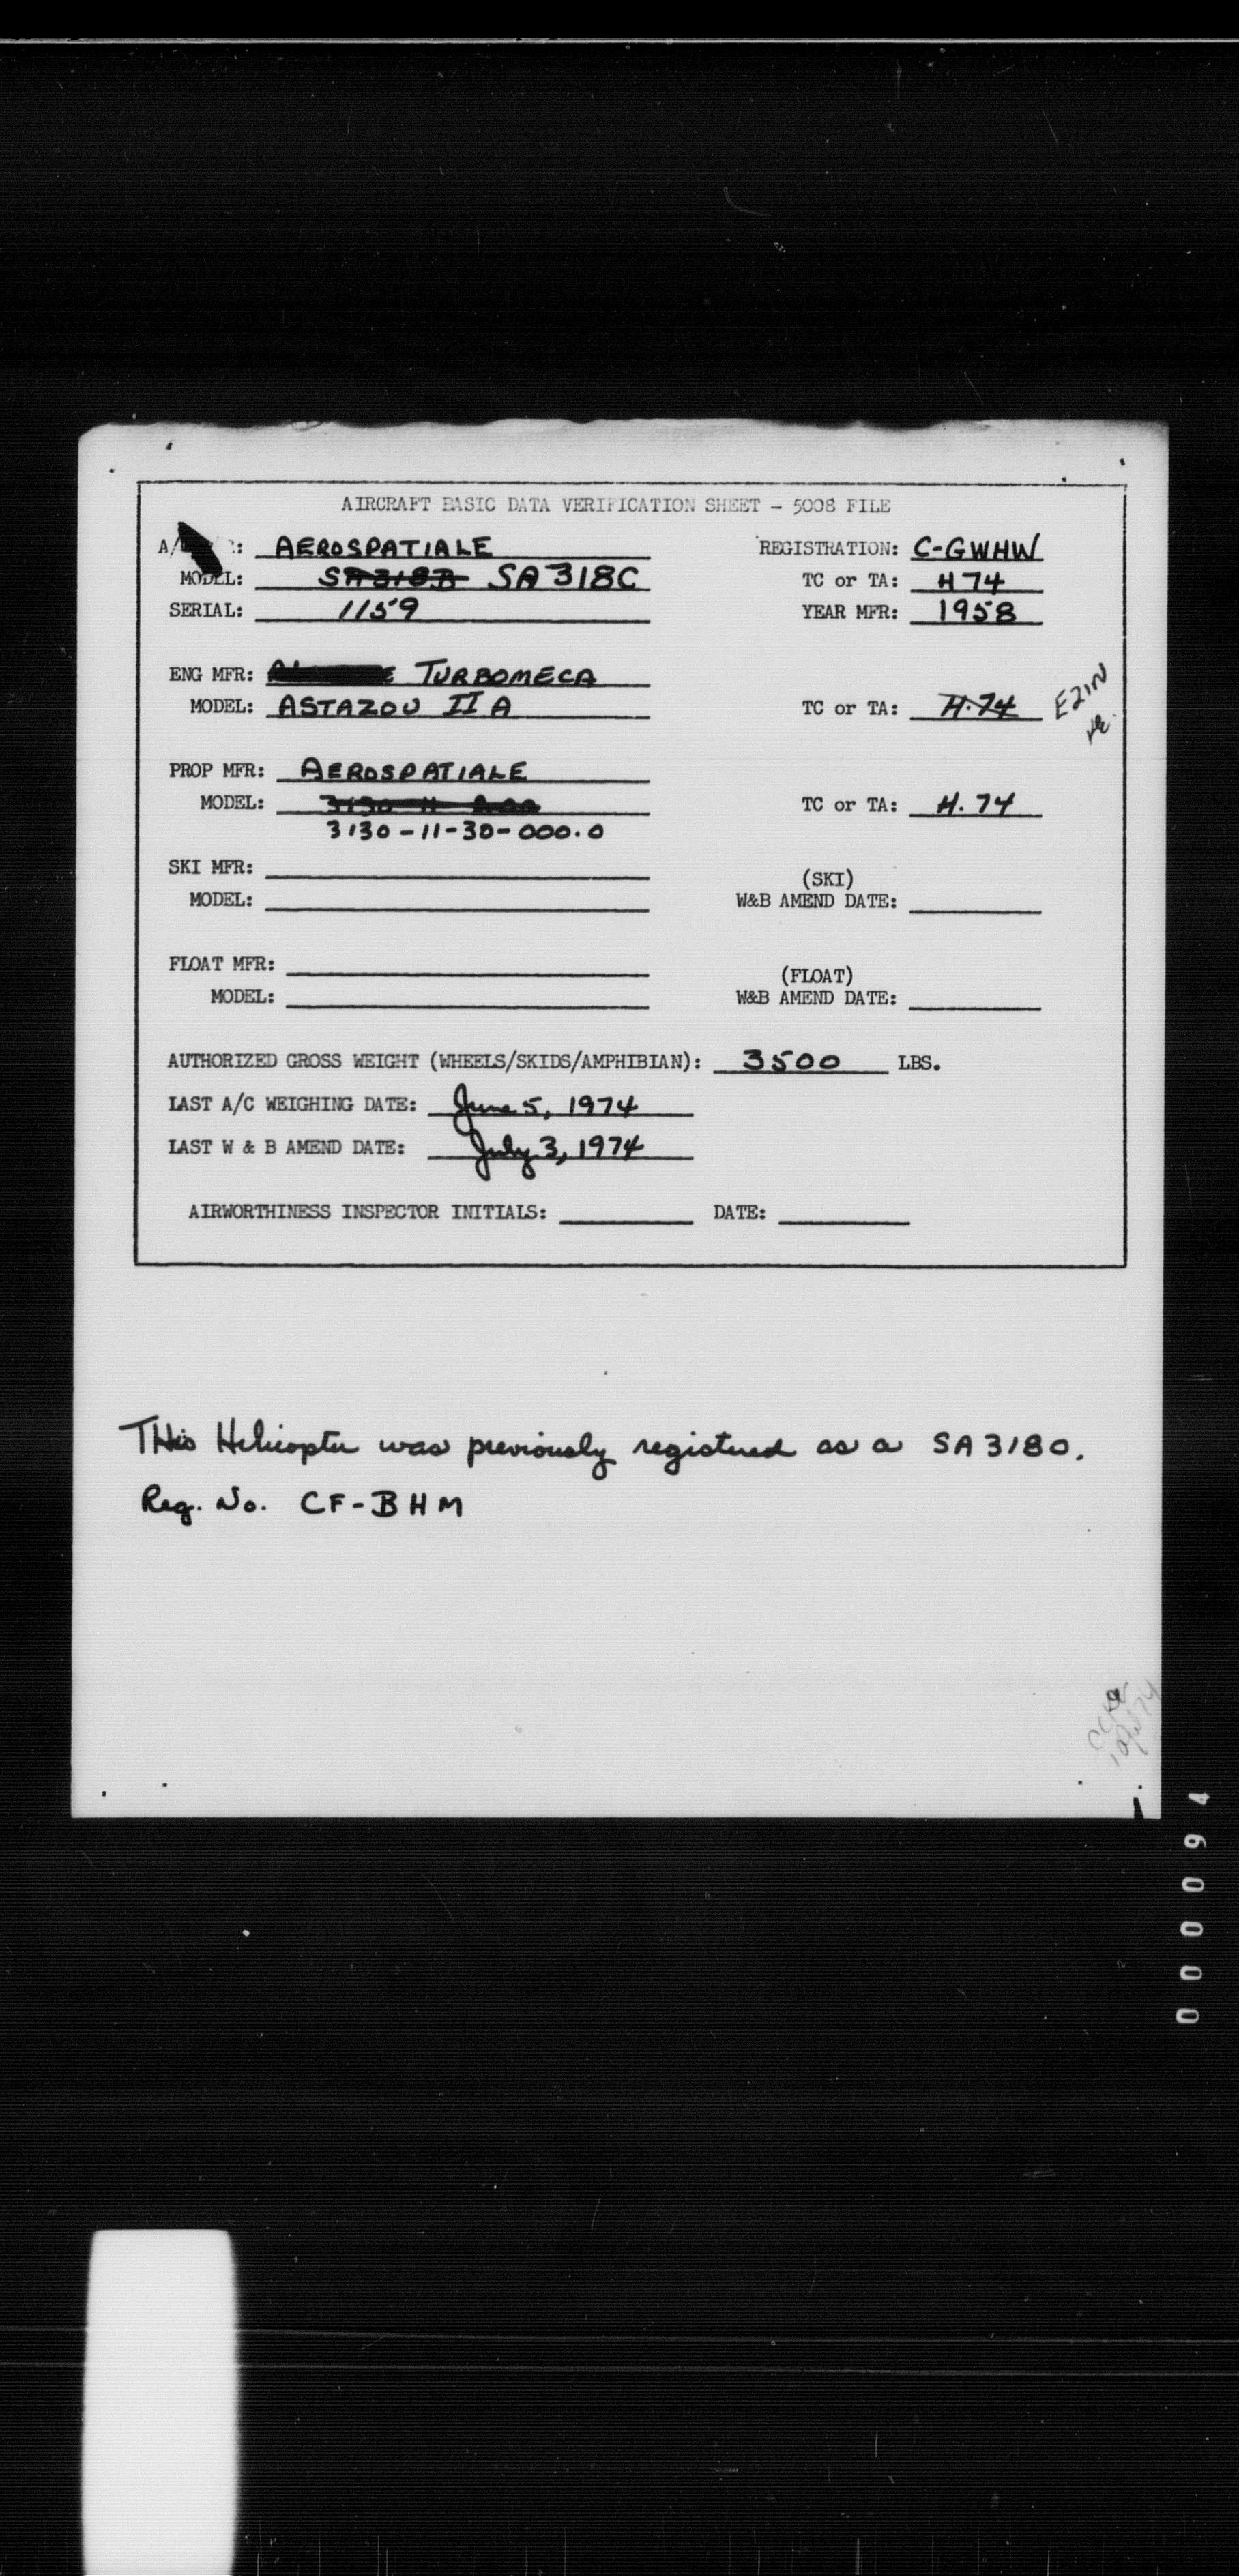 AIRCRAFT BASIC DATA VERIFICATION SHEET - 5008 FILE
AEROSPATIALE REGISTRATION: C-GWHW
MODEL: SA318B SA318C TC or TA: H74
SERIAL: 1159 YEAR MFR: 1958
ENG MFR: TURBOMECA
MODEL: ASTAZOU II A TC or TA: H.74 E21N
PROP MFR: AEROSPATIALE
MODEL: TC or TA: H.74
3130-11-30-000.0
SKI MFR:
(SKI)
MODEL: W&B AMEND DATE:
FLOAT MFR:
(FLOAT)
MODEL: W&B AMEND DATE:
AUTHORIZED GROSS WEIGHT (WHEELS/SKIDS/AMPHIBIAN): 3500 LBS.
LAST A/C WEIGHING DATE: June 5, 1974
LAST W & B AMEND DATE: July 3, 1974
AIRWORTHINESS INSPECTOR INITIALS: DATE:
THis Helicopter was previously registered as a SA3180.
Reg. No. CF-BHM
000094